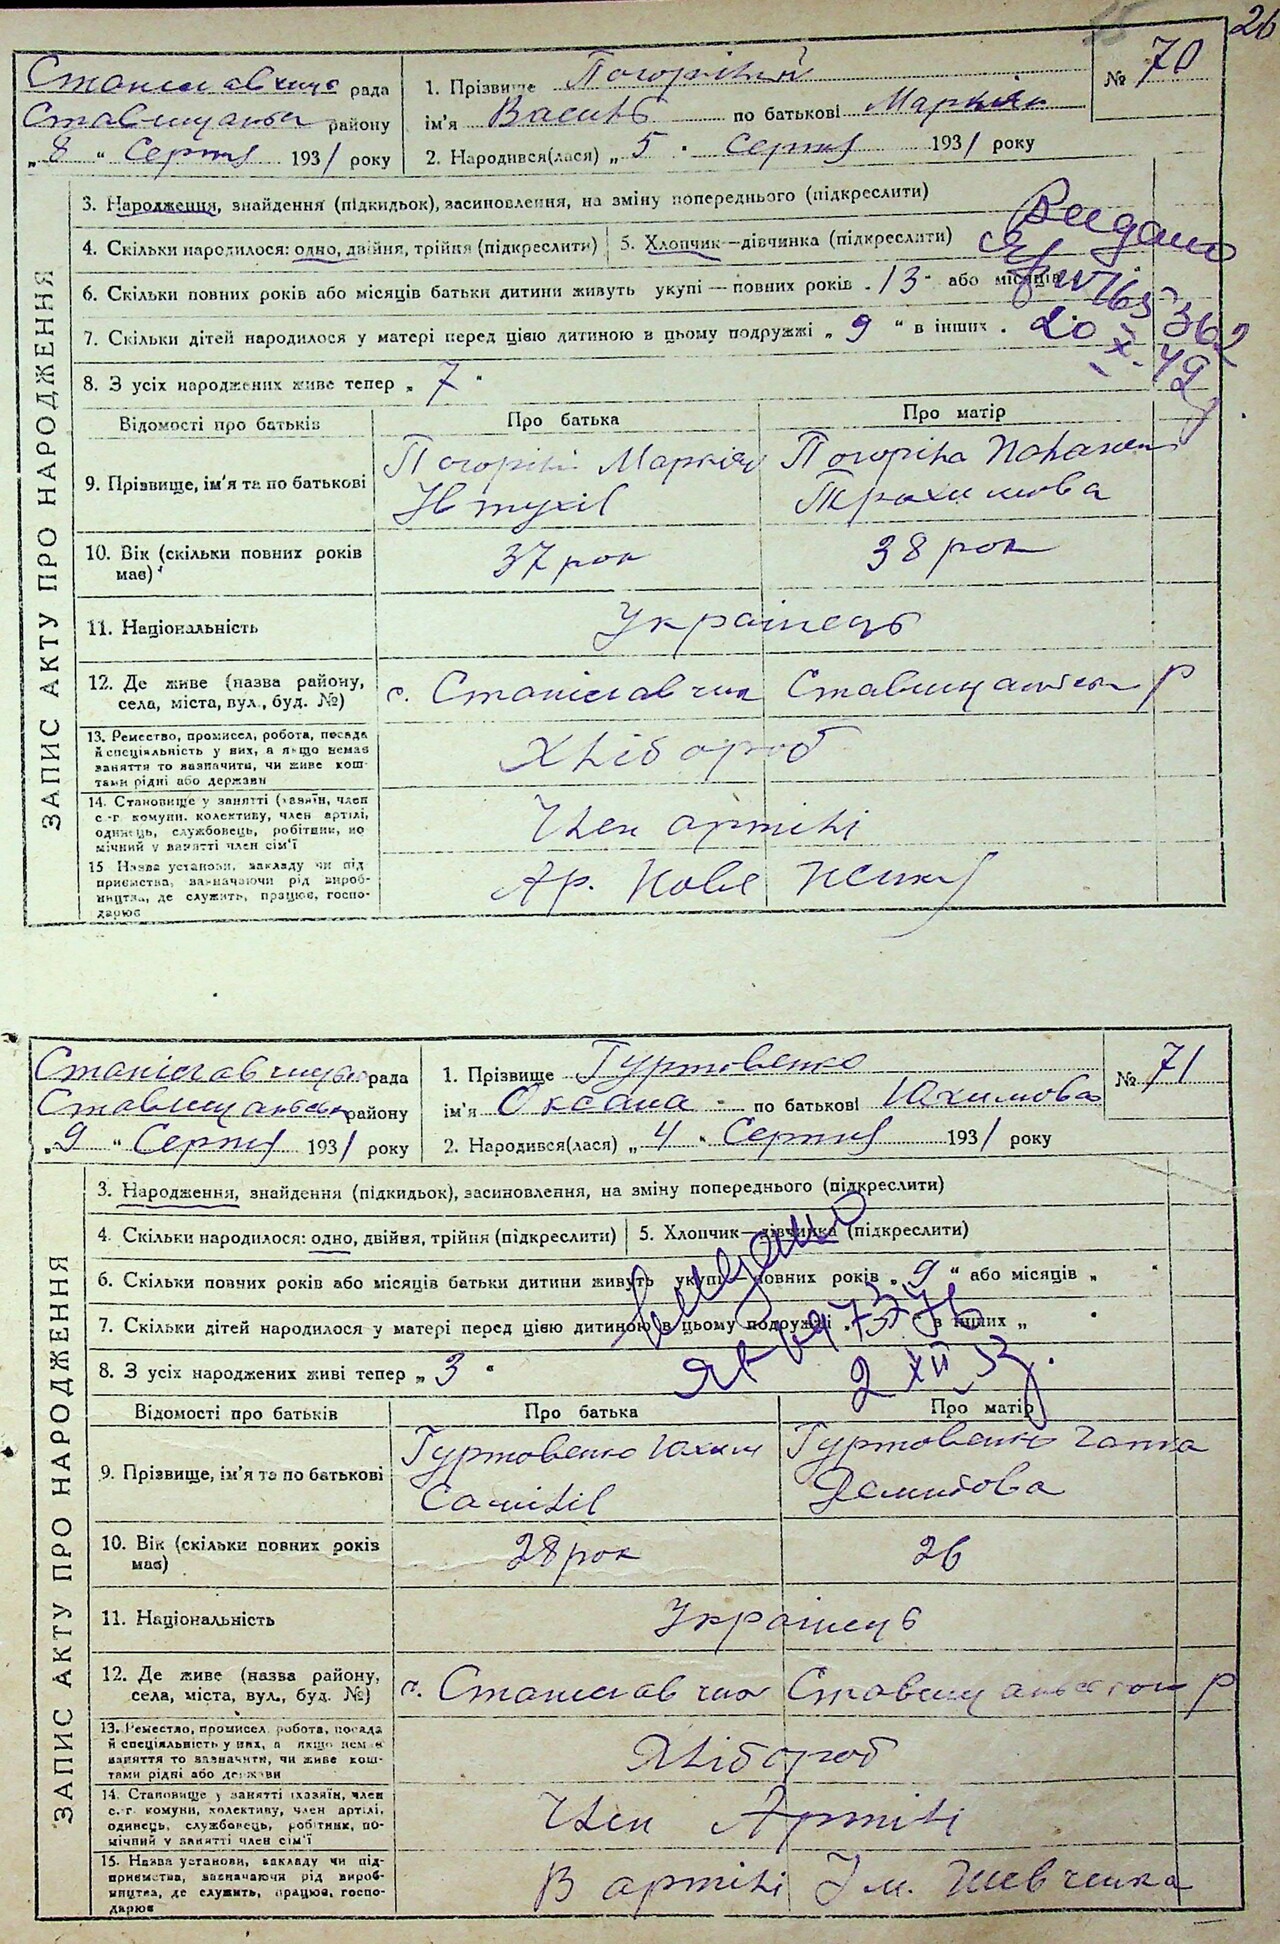 26
Станиславчицо рада
Ставищансь району
„8“ Серпня 1931 року
1. Прізвище Погорілий
ім'я Василь по батькові Маркіян
2. Народився(лася) „5“ Серпня 1931 року
№ 70
ЗАПИС АКТУ ПРО НАРОДЖЕННЯ
3. Народження, знайдення (підкидьок), засиновлення, на зміну попереднього (підкреслити)
4. Скільки народилося: одно, двійня, трійня (підкреслити) 5. Хлопчик—дівчинка (підкреслити)
Видано
6. Скільки повних років або місяців батьки дитини живуть укупі — повних років „13“ або місяців
362
7. Скільки дітей народилося у матері перед цією дитиною в цьому подружжі „9“ в інших
20 X. 49
8. З усіх народжених живе тепер „7“
Відомості про батьків Про батька Про матір
9. Прізвище, ім'я та по батькові
Погоріл Маркіян
Явтухів
Погоріла
Трохимова
10. Вік (скільки повних років має) 37 рок 38 рок
11. Національність Українець
12. Де живе (назва району,
села, міста, вул., буд. №)
с. Станіславчик Ставищанськ Р
13. Ремество, промисел, робота, посада
й спеціяльність у них, а якщо немає
заняття то зазначити, чи живе кош-
тами рідні або держави
Хлібороб
14. Становище у занятті (хазяїн, член
с.-г. комуни, колективу, член артілі,
одинець, службовець, робітник, по
мічний у занятті член сім'ї
Член артілі
15 Назва установи, закладу чи під
приємства, зазначаючи рід вироб-
ництва, де служить, працює, госпо-
дарює
Ар. Нове
Станіславчицьк рада
Ставищанськ району
„9“ Серпня 1931 року
1. Прізвище Гуртовенко
ім'я Оксана по батькові Юхимова
2. Народився(лася) „4“ Серпня 1931 року
№ 71
ЗАПИС АКТУ ПРО НАРОДЖЕННЯ
3. Народження, знайдення (підкидьок), засиновлення, на зміну попереднього (підкреслити)
4. Скільки народилося: одно, двійня, трійня (підкреслити) 5. Хлопчик—дівчинка (підкреслити)
Видано
6. Скільки повних років або місяців батьки дитини живуть укупі — повних років „9“ або місяців „ “
7. Скільки дітей народилося у матері перед цією дитиною в цьому подружжі „ “ в інших „
8. З усіх народжених живі тепер „3“
2 XII
Відомості про батьків Про батька Про матір
9. Прізвище, ім'я та по батькові
Гуртовенко Юхим
Самілів
Гуртовенко Ганна
Демидова
10. Вік (скільки повних років має) 28 рок 26
11. Національність Українець
12. Де живе (назва району,
села, міста, вул., буд. №)
с. Станіславчик Ставищанського Р
13. Ремество, промисел, робота, посада
й спеціяльність у них, а якщо немає
заняття то зазначити, чи живе кош-
тами рідні або держави
Хлібороб
14. Становище у занятті (хазяїн, член
с.-г. комуни, колективу, член артілі,
одинець, службовець, робітник, по-
мічний у занятті член сім'ї
Член Артілі
15. Назва установи, закладу чи під-
приємства, зазначаючи рід вироб-
ництва, де служить, працює, госпо-
дарює
В артілі Ім. Шевченка